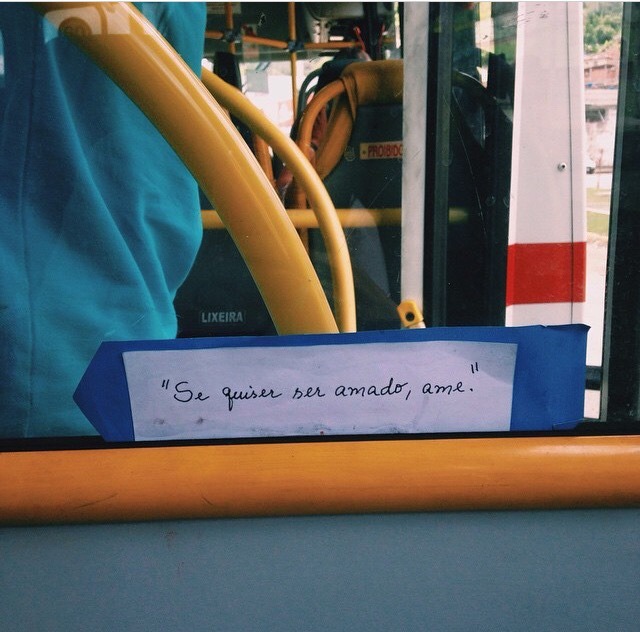 PROIBIDO
LIXEIRA
"Se quiser ser amado, ame."